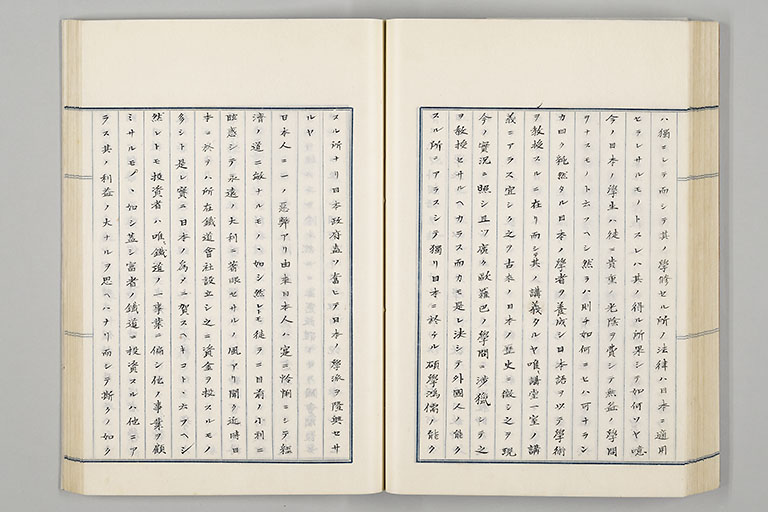 ハ獨ニシテ而シテ其ノ學修セル所ノ法律ハ日本ニ適用
セラレサルモノトスレハ其ノ得ル所果シテ如何ソヤ噫
今ノ日本ノ學生ハ徒ニ貴重ノ光陰ヲ費シテ無益ノ學問
ヲナスモノト云フヘシ然ラハ則チ如何ニセハ可ナラン
カ曰ク純然タル日本ノ學者ヲ養成シ日本語ヲ以テ學術
ヲ教授スルニ在リ而シテ其ノ講義タルヤ唯講堂一室ノ講
義ニアラス宜シク之ヲ古来ノ日本ノ歴史ニ徴シ之ヲ現
今ノ實况ニ照シ且ツ廣ク歐羅巴ノ學問ニ涉獵シテ之
ヲ教授セサルヘカラス而カモ是レ决シテ外國人ノ能ク
スル所ニアラスシテ獨リ日本ニ於ケル碩學鴻儒ノ能ク
スル所ナリ日本政府盍ソ奮レテ日本ノ學派ヲ隆興セサ
ルヤ
日本人ニ一ノ惡弊アリ由来日本人ハ寔ニ怜悧ニシテ經
濟ノ道ニ敏ナルモノヽ如シ然レトモ徒ラニ目前ノ小利ニ
眩惑シテ永遠ノ大利ニ著眼セサルノ風アリ聞ク近時日
本ニ於テハ所在鐵道會社設立シ之ニ資金ヲ投スルモノ
多シト是レ實ニ日本ノ為メニ賀スヘキコトヽ云フヘシ
然レトモ投資者ハ唯鐵道ノ一事業ニ偏シ他ノ事業ヲ顧
ミサルモノヽ如シ蓋シ富者ノ鐵道ニ投資スルハ他ニア
ラス其ノ利益ノ大ナルヲ思ヘハナリ而シテ斯クノ如ク